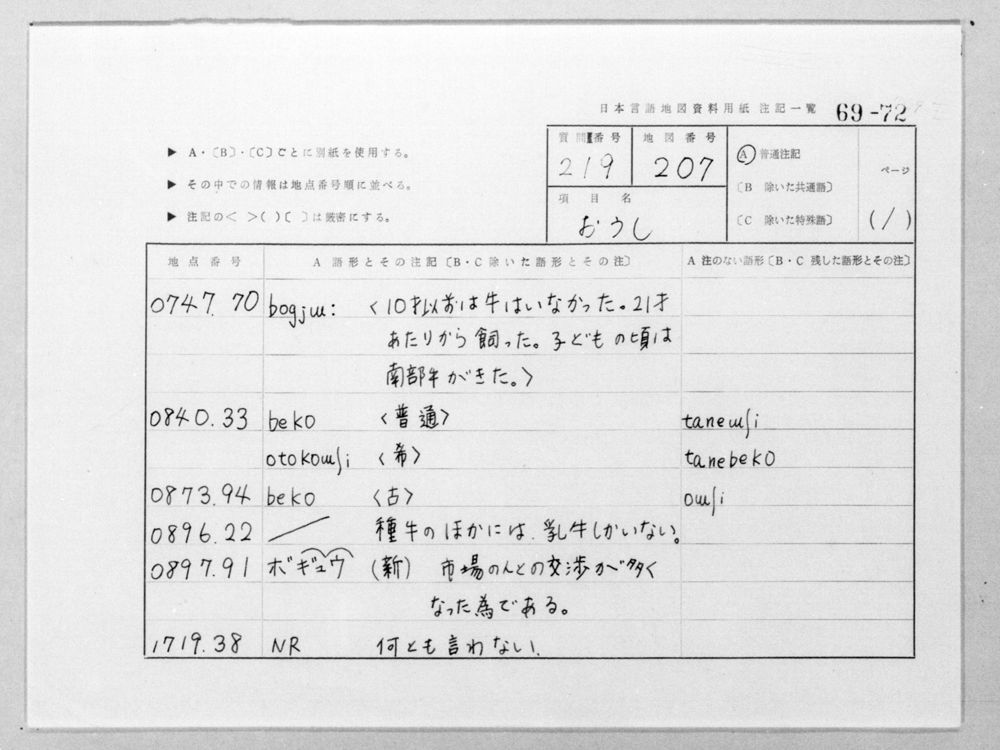 日本言語地図資料用紙 注記一覧 69-72
▶ A・〔B〕・〔C〕ごとに別紙を使用する。
▶ その中での情報は地点番号順に並べる。
▶ 注記の< >( )〔 〕は厳密にする。
質問番号 地図番号
219 207
項目名
おうし
Ⓐ 普通注記
〔B 除いた共通語〕
〔C 除いた特殊語〕
ページ
(/)
地点番号 A 語形とその注記〔B・C除いた語形とその注〕 A 注のない語形〔B・C 残した語形とその注〕
0747.70 bogjɯ: 〈10才以前は牛はいなかった。21才
あたりから飼った。子どもの頃は
南部牛がきた。〉
0840.33 beko 〈普通〉 taneɯʃi
otokoɯʃi 〈希〉 tanebeko
0873.94 beko 〈古〉 oɯʃi
0896.22 ／ 種牛のほかには、乳牛しかいない。
0897.91 ボギュウ (新) 市場の人との交渉が多く
なった為である。
1719.38 NR 何とも言わない.